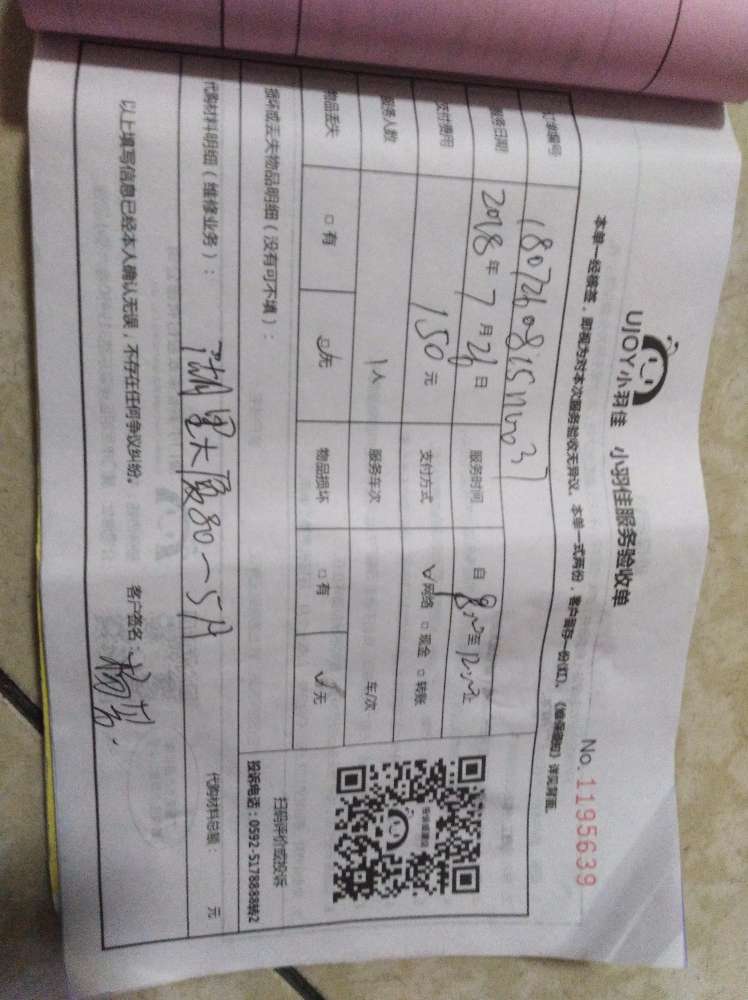 UJOY小羽佳 小羽佳服务验收单
No. 1195639
本单一经签，即视为对本次服务验收无异议。本单一式两份，客户留存一份(红)。详见背面。
订单编号
服务日期 2018 年 7 月 26 日 服务时间 自 8:00 至 12:00止
支付费用 150 元 支付方式 √网络 □现金 □转账
服务人数 1 人 服务车次 车/次
物品丢失 □有 ☑无 物品损坏 □有 √无
损坏或丢失物品明细（没有可不填）：
扫码评价或投诉
投诉电话：0592-5178888转2
代购材料明细（维修业务）： 大厦80 代购材料总额： 元
以上填写信息已经本人确认无误，不存在任何争议纠纷。 客户签名：杨